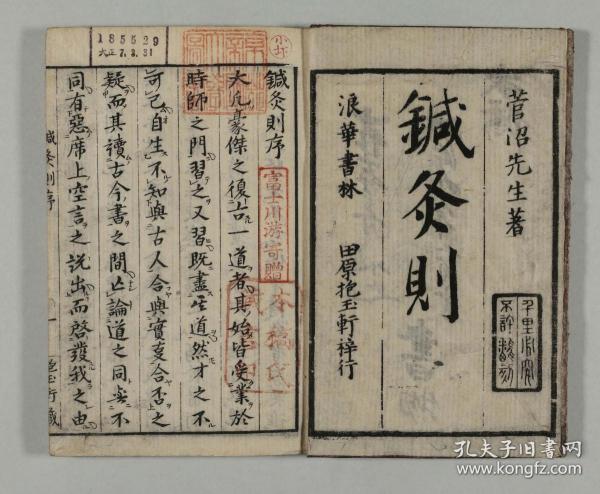 菅沼先生著
鍼灸則
浪華書林 田原抱玉軒梓行
千里必究
不許翻刻
鍼灸則序
大凡豪傑之復古一道者其始皆受業於
時師之門習之又習既盡其道然才之不
可已自生不知與古人合與實事合否之
疑而其讀古今書之間亡論道之同與不
同有惡席上空言之說出而啓發我之由
鍼灸則序
一
富士川游寄贈
185529
大正7.3.31
孔夫子旧书网
www.kongfz.com